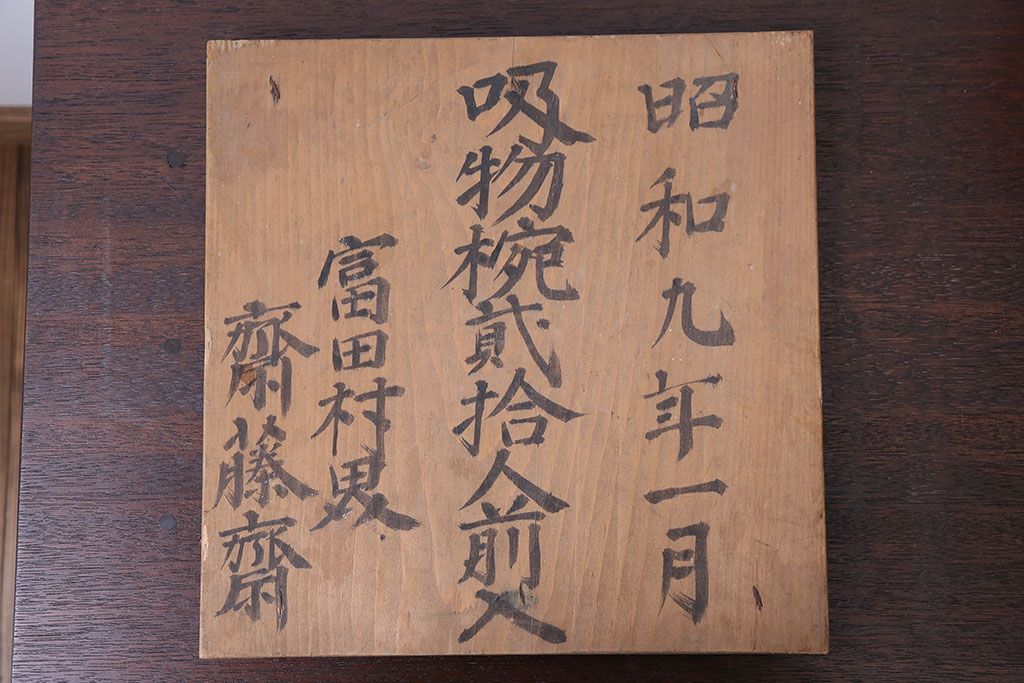 昭和九年一月
吸物椀貳拾人前入
富田村
齋藤齋